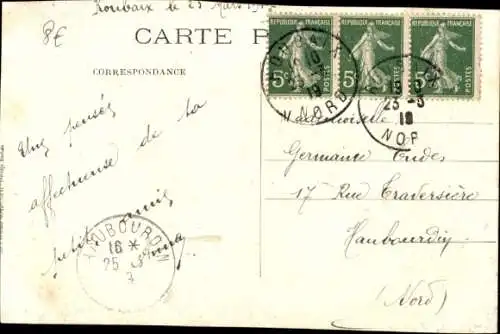 Roubaix le 23 Mars
8E
CARTE P
CORRESPONDANCE
REPUBLIQUE FRANÇAISE
5c POSTES
REPUBLIQUE FRANÇAISE
5c POSTES
REPUBLIQUE FRANÇAISE
5c POSTES
NORD
23-3
NOR
Une pensée
affectueuse de la
petite amie
HAUBOURDIN
16 *
25
3
Mademoiselle
Germaine
17 Rue Traversière
Haubourdin
(Nord)